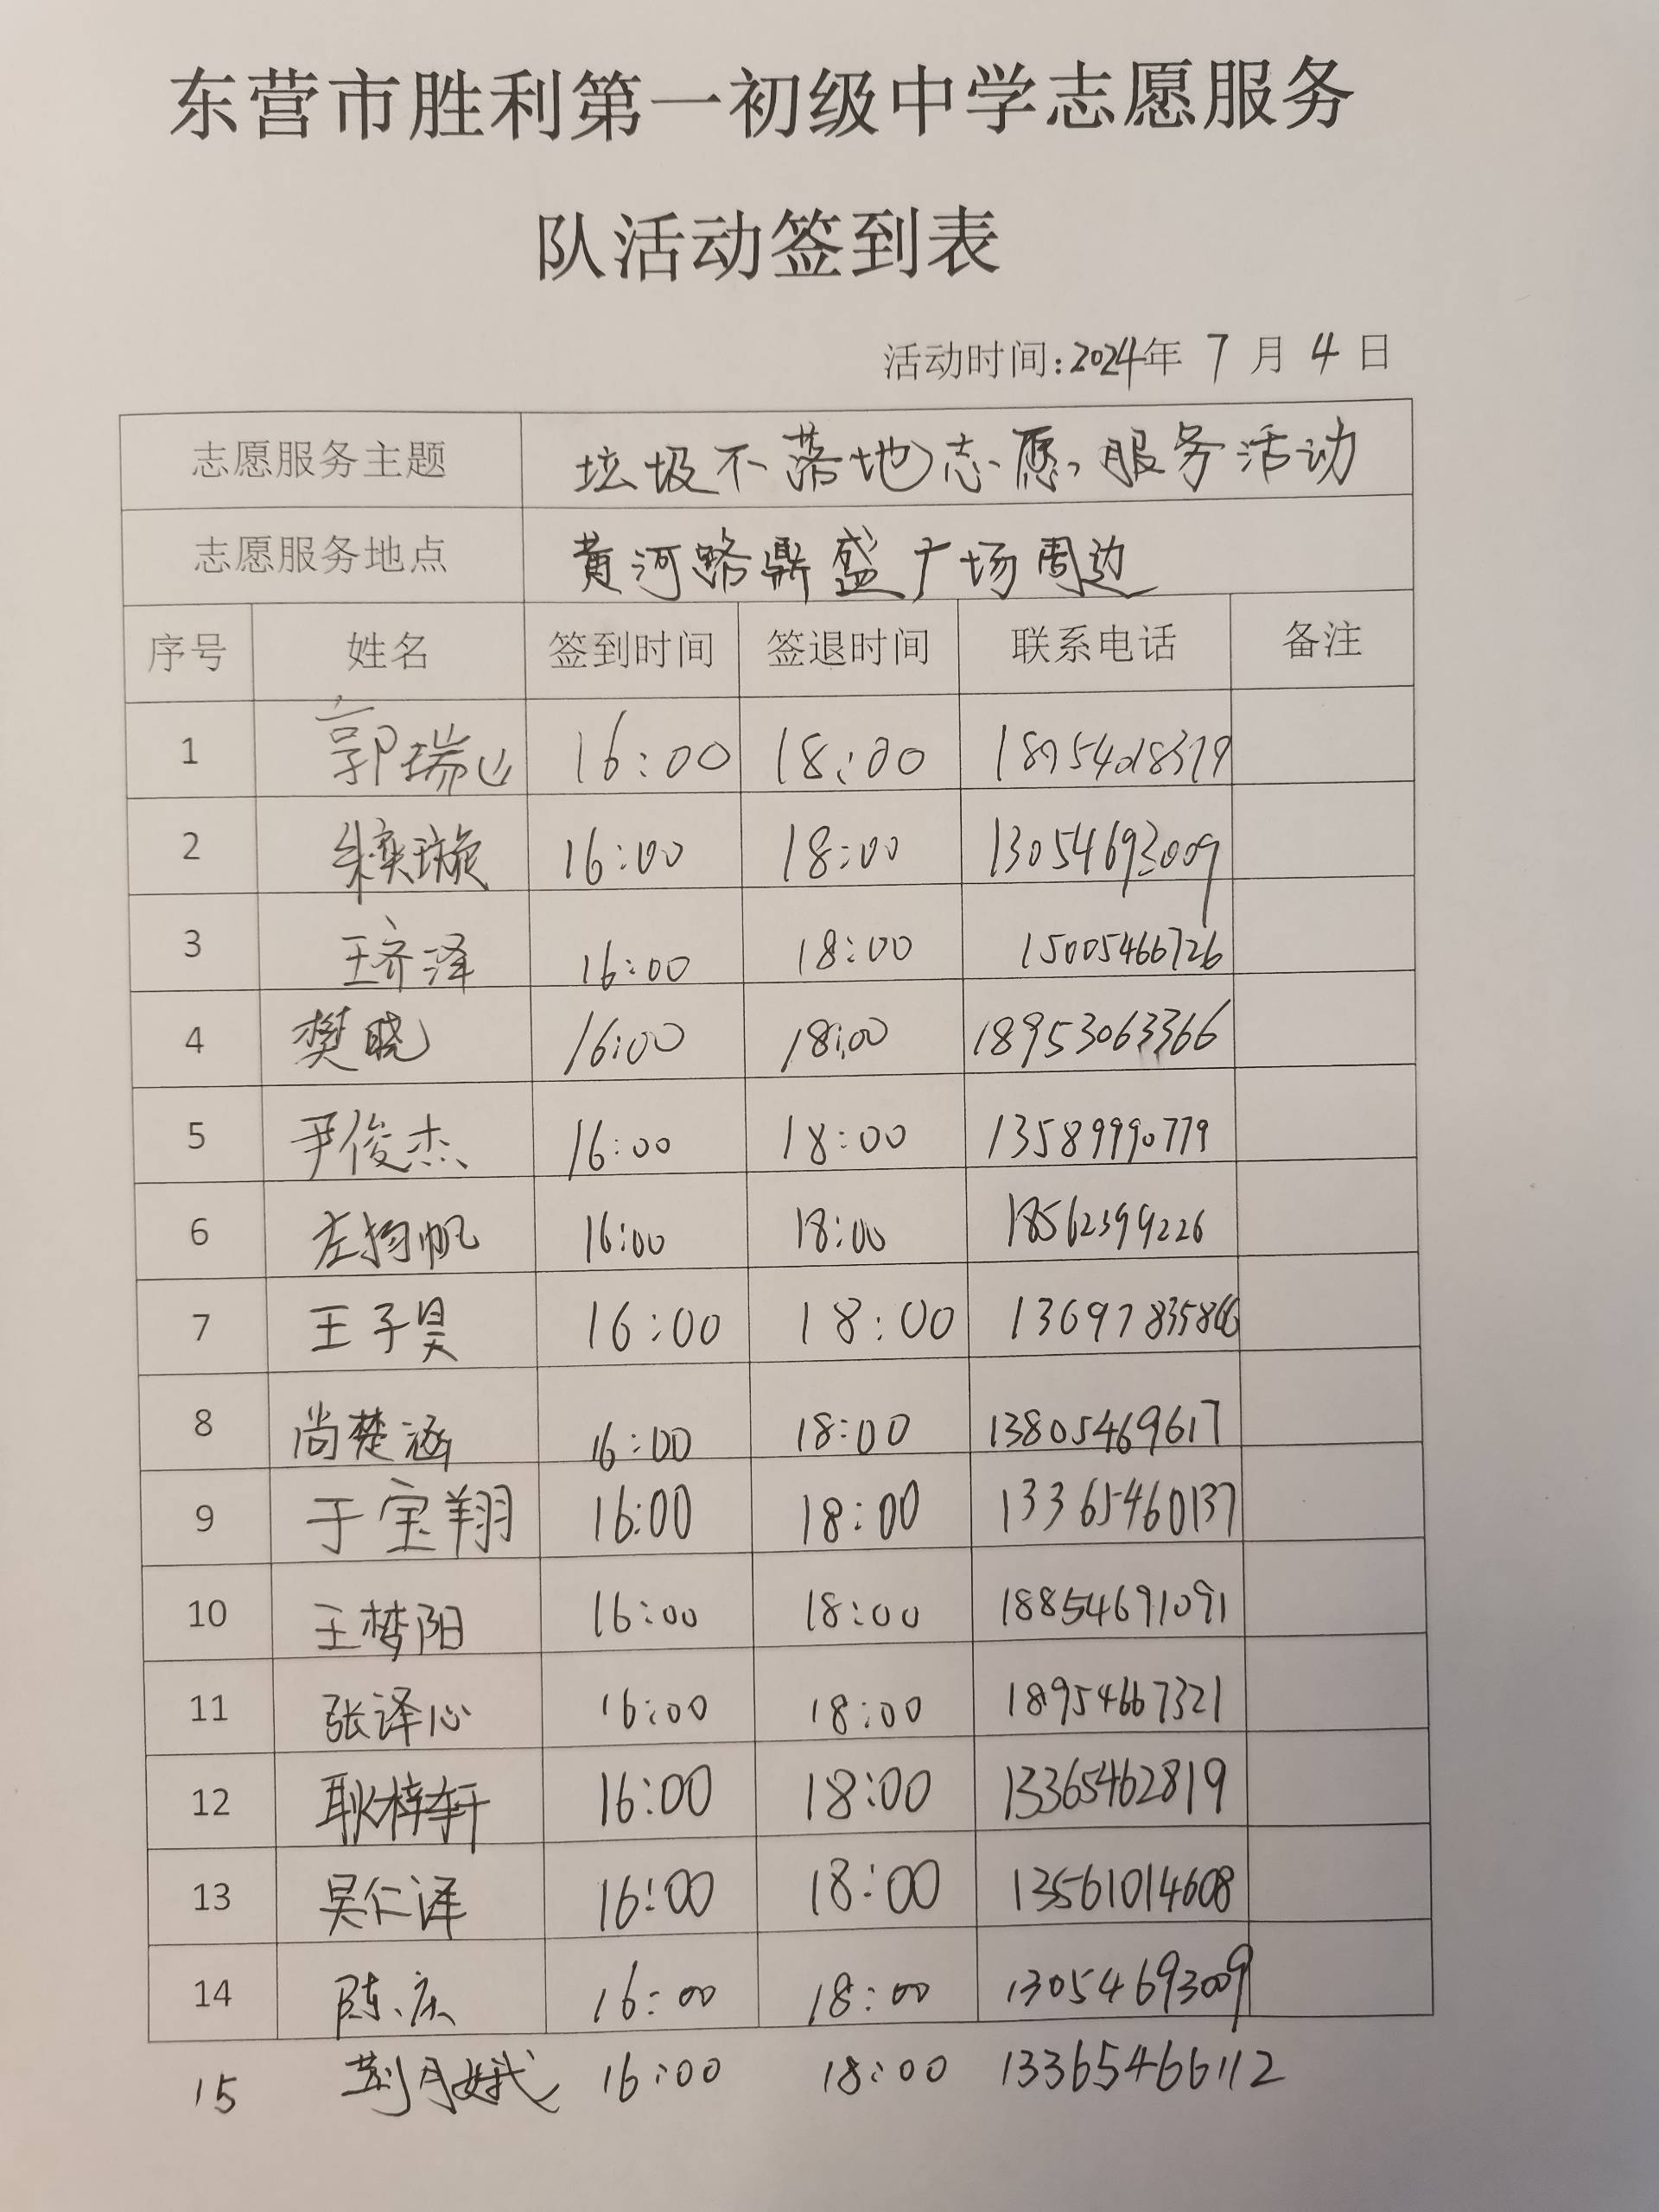 东营市胜利第一初级中学志愿服务
队活动签到表
活动时间:2024年 7 月 4 日
志愿服务主题 垃圾不落地志愿服务活动
志愿服务地点 黄河路鼎盛广场周边
序号 姓名 签到时间 签退时间 联系电话 备注
1 郭瑞 16:00 18:00
2 16:00 18:00 13054693009
3 王齐泽 16:00 18:00 15005466726
4 樊晓 16:00 18:00 18953063366
5 尹俊杰 16:00 18:00 13589990779
6 左扬帆 16:00 18:00 18562399226
7 王子昊 16:00 18:00 13697835866
8 尚楚涵 16:00 18:00 13805469617
9 于宝翔 16:00 18:00 13365460137
10 王梦阳 16:00 18:00 18854691091
11 张译心 16:00 18:00 18954667321
12 耿梓轩 16:00 18:00 13365462819
13 吴仁泽 16:00 18:00 13561014608
14 陈庆 16:00 18:00 13054693009
15 荆月娥 16:00 18:00 13365466112